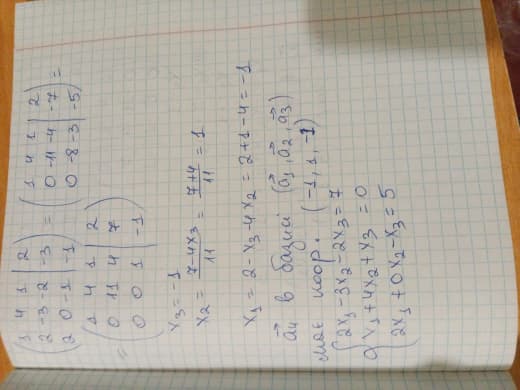 ( 1 4 1 | 2 ) = ( 1 4 1 | 2 ) =
( 2 -3 -2 | -3 ) ( 0 -11 -4 | -7 )
( 2 0 -1 | -1 ) ( 0 -8 -3 | -5 )
= ( 1 4 1 | 2 )
( 0 11 4 | 7 )
( 0 0 1 | -1 )
x₃ = -1
x₂ = (7-4x₃)/11 = (7+4)/11 = 1
x₁ = 2 - x₃ - 4x₂ = 2+1-4 = -1
a₄⃗ в базисі (a₁⃗, a₂⃗, a₃⃗)
має коор. (-1, 1, -1)
{ 2x₁ - 3x₂ - 2x₃ = 7
x₁ + 4x₂ + x₃ = 0
2x₁ + 0x₂ - x₃ = 5